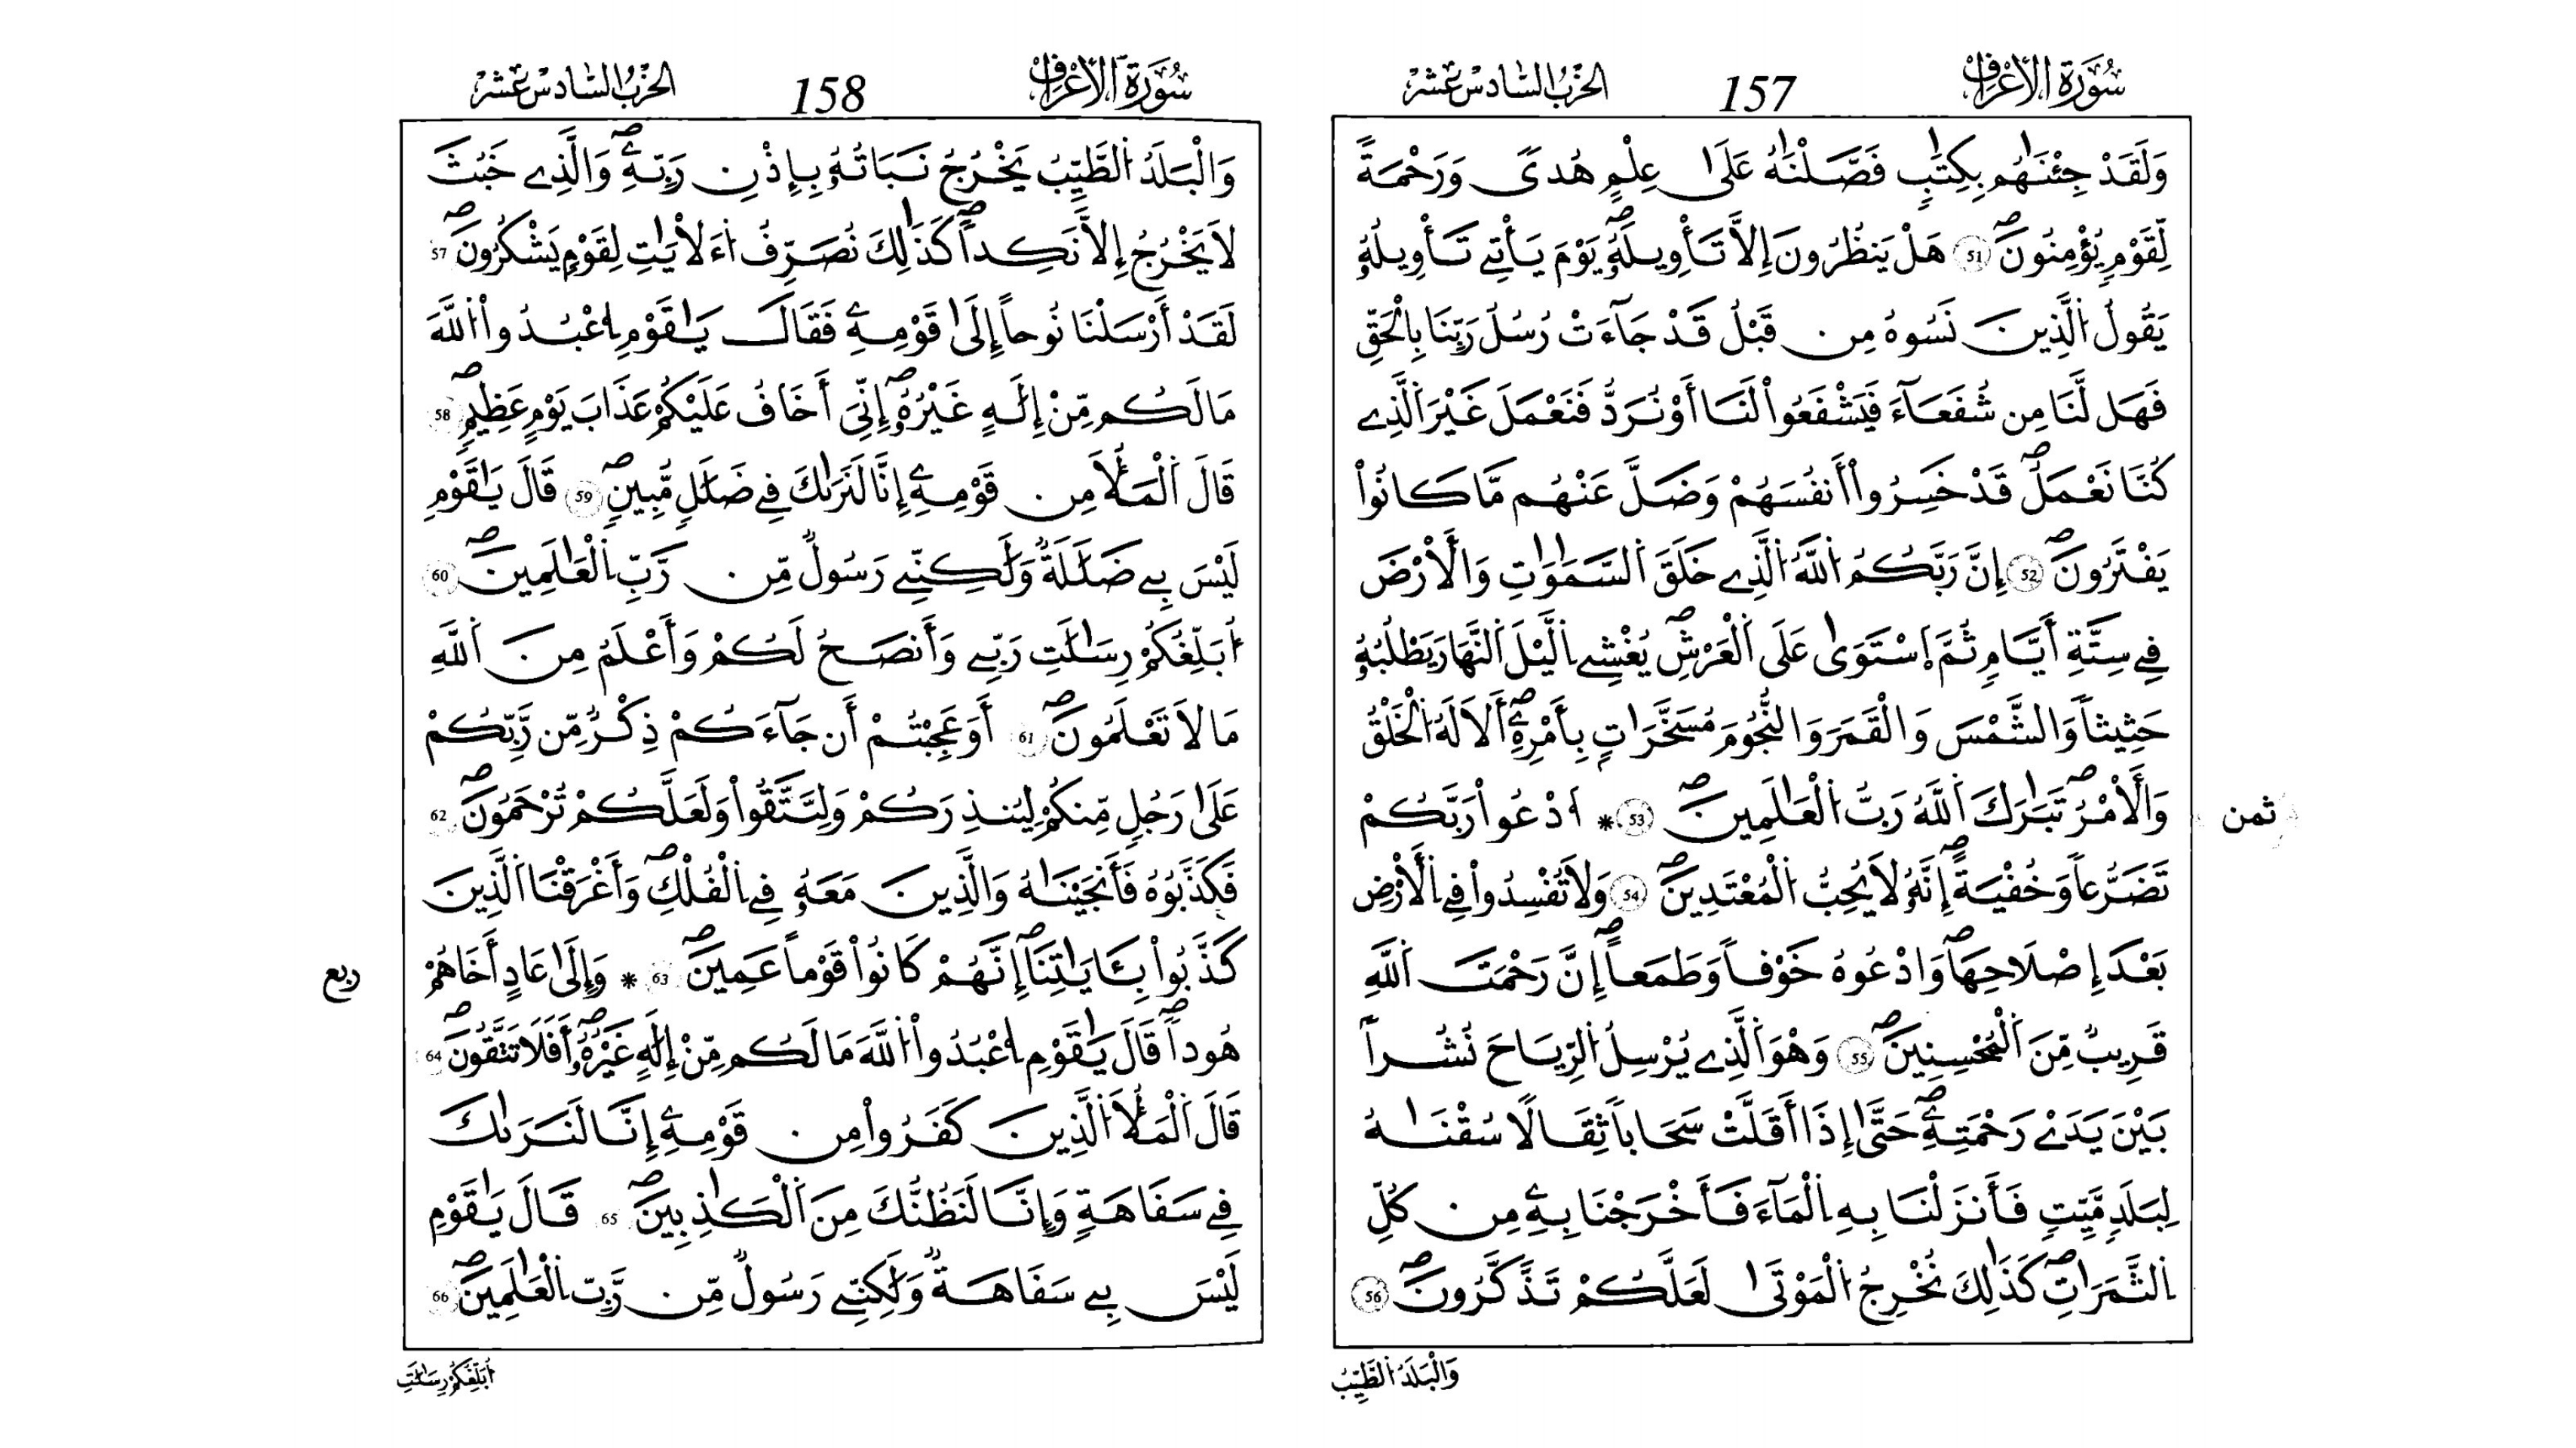 سُورَةُ الْأَعْرَافِ 157 الحِزْبُ السَّادِسَ عَشَرَ
وَلَقَدْ جِئْنَٰهُم بِكِتَٰبٍ فَصَّلْنَٰهُ عَلَىٰ عِلْمٍ هُدىً وَرَحْمَةً
لِّقَوْمٍ يُؤْمِنُونَۖ 51 هَلْ يَنظُرُونَ إِلَّا تَأْوِيلَهُۥۖ يَوْمَ يَأْتِے تَأْوِيلُهُۥ
يَقُولُ اُ۬لذِينَ نَسُوهُ مِن قَبْلُ قَدْ جَآءَتْ رُسُلُ رَبِّنَا بِالْحَقِّ
فَهَل لَّنَا مِن شُفَعَآءَ فَيَشْفَعُواْ لَنَا أَوْ نُرَدُّ فَنَعْمَلَ غَيْرَ اَ۬لَّذِے
كُنَّا نَعْمَلُۖ قَدْ خَسِرُواْ أَنفُسَهُمْ وَضَلَّ عَنْهُم مَّا كَانُواْ
يَفْتَرُونَۖ 52 إِنَّ رَبَّكُمُ اُ۬للَّهُ اُ۬لَّذِے خَلَقَ اَ۬لسَّمَٰوَٰتِ وَالْأَرْضَ
فِے سِتَّةِ أَيَّامٍ ثُمَّ اَ۪سْتَوَىٰ عَلَى اَ۬لْعَرْشِۖ يُغْشِے اِ۬لَّيْلَ اَ۬لنَّهَارَ يَطْلُبُهُۥ
حَثِيثاً وَالشَّمْسَ وَالْقَمَرَ وَالنُّجُومَ مُسَخَّرَاتٍ بِأَمْرِهِۦۖ أَلَا لَهُ اُ۬لْخَلْقُ
وَالْأَمْرُۖ تَبَٰرَكَ اَ۬للَّهُ رَبُّ اُ۬لْعَٰلَمِينَۖ 53 * اَ۟دْعُواْ رَبَّكُمْ
ثمن
تَضَرُّعاً وَخُفْيَةًۖ إِنَّهُۥ لَا يُحِبُّ اُ۬لْمُعْتَدِينَۖ 54 وَلَا تُفْسِدُواْ فِے اِ۬لْأَرْضِ
بَعْدَ إِصْلَاحِهَاۖ وَادْعُوهُ خَوْفاً وَطَمَعاًۖ إِنَّ رَحْمَتَ اَ۬للَّهِ
قَرِيبٌ مِّنَ اَ۬لْمُحْسِنِينَۖ 55 وَهْوَ اَ۬لَّذِے يُرْسِلُ اُ۬لرِّيَاحَ نُشُراً
بَيْنَ يَدَےْ رَحْمَتِهِۦۖ حَتَّىٰ إِذَا أَقَلَّتْ سَحَاباً ثِقَالًا سُقْنَٰهُ
لِبَلَدٍ مَّيِّتٍ فَأَنزَلْنَا بِهِ اِ۬لْمَآءَ فَأَخْرَجْنَا بِهِۦ مِن كُلِّ
اِ۬لثَّمَرَاتِۖ كَذَٰلِكَ نُخْرِجُ اُ۬لْمَوْتَىٰ لَعَلَّكُمْ تَذَّكَّرُونَۖ 56
وَالْبَلَدُ اُ۬لطَّيِّبُ
سُورَةُ الْأَعْرَافِ 158 الحِزْبُ السَّادِسَ عَشَرَ
وَالْبَلَدُ اُ۬لطَّيِّبُ يَخْرُجُ نَبَاتُهُۥ بِإِذْنِ رَبِّهِۦۖ وَالَّذِے خَبُثَ
لَا يَخْرُجُ إِلَّا نَكِداًۖ كَذَٰلِكَ نُصَرِّفُ اُ۬ءَلْأيَٰتِ لِقَوْمٍ يَشْكُرُونَۖ 57
لَقَدْ أَرْسَلْنَا نُوحاً إِلَىٰ قَوْمِهِۦ فَقَالَ يَٰقَوْمِ اِ۟عْبُدُواْ اُ۬للَّهَ
مَا لَكُم مِّنْ إِلَٰهٍ غَيْرُهُۥۖ إِنِّيَ أَخَافُ عَلَيْكُمْ عَذَابَ يَوْمٍ عَظِيمٍۖ 58
قَالَ اَ۬لْمَلَأُ مِن قَوْمِهِۦ إِنَّا لَنَرَىٰكَ فِے ضَلَٰلٍ مُّبِينٍۖ 59 قَالَ يَٰقَوْمِ
لَيْسَ بِے ضَلَٰلَةٌ وَلَٰكِنِّے رَسُولٌ مِّن رَّبِّ اِ۬لْعَٰلَمِينَۖ 60
أُبَلِّغُكُمْ رِسَٰلَٰتِ رَبِّے وَأَنصَحُ لَكُمْ وَأَعْلَمُ مِنَ اَ۬للَّهِ
مَا لَا تَعْلَمُونَۖ 61 أَوَعَجِبْتُمْ أَن جَآءَكُمْ ذِكْرٌ مِّن رَّبِّكُمْ
عَلَىٰ رَجُلٍ مِّنكُمْ لِيُنذِرَكُمْ وَلِتَتَّقُواْ وَلَعَلَّكُمْ تُرْحَمُونَۖ 62
فَكَذَّبُوهُ فَأَنجَيْنَٰهُ وَالَّذِينَ مَعَهُۥ فِے اِ۬لْفُلْكِۖ وَأَغْرَقْنَا اَ۬لَّذِينَ
كَذَّبُواْ بِـَٔايَٰتِنَاۖ إِنَّهُمْ كَانُواْ قَوْماً عَمِينَۖ 63 * وَإِلَىٰ عَادٍ أَخَاهُمْ
ربع
هُوداًۖ قَالَ يَٰقَوْمِ اِ۟عْبُدُواْ اُ۬للَّهَ مَا لَكُم مِّنْ إِلَٰهٍ غَيْرُهُۥۖ أَفَلَا تَتَّقُونَۖ 64
قَالَ اَ۬لْمَلَأُ اُ۬لَّذِينَ كَفَرُواْ مِن قَوْمِهِۦ إِنَّا لَنَرَىٰكَ
فِے سَفَاهَةٍ وَإِنَّا لَنَظُنُّكَ مِنَ اَ۬لْكَٰذِبِينَۖ 65 قَالَ يَٰقَوْمِ
لَيْسَ بِے سَفَاهَةٌ وَلَٰكِنِّے رَسُولٌ مِّن رَّبِّ اِ۬لْعَٰلَمِينَۖ 66
أُبَلِّغُكُمْ رِسَٰلَٰتِ